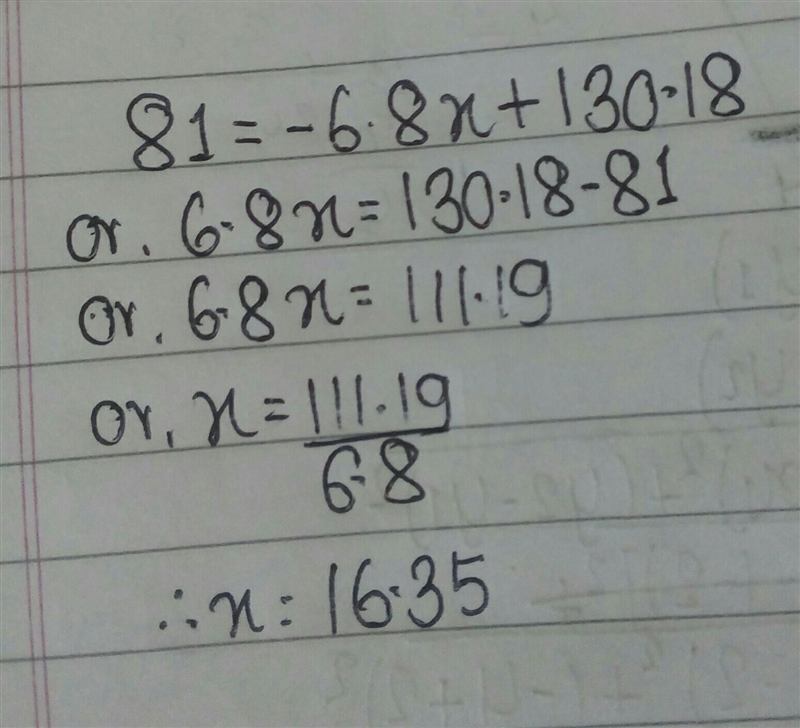 81 = -6.8x + 130.18
or. 6.8x = 130.18 - 81
or. 6.8x = 111.19
or, x = 111.19 / 6.8
∴ x = 16.35